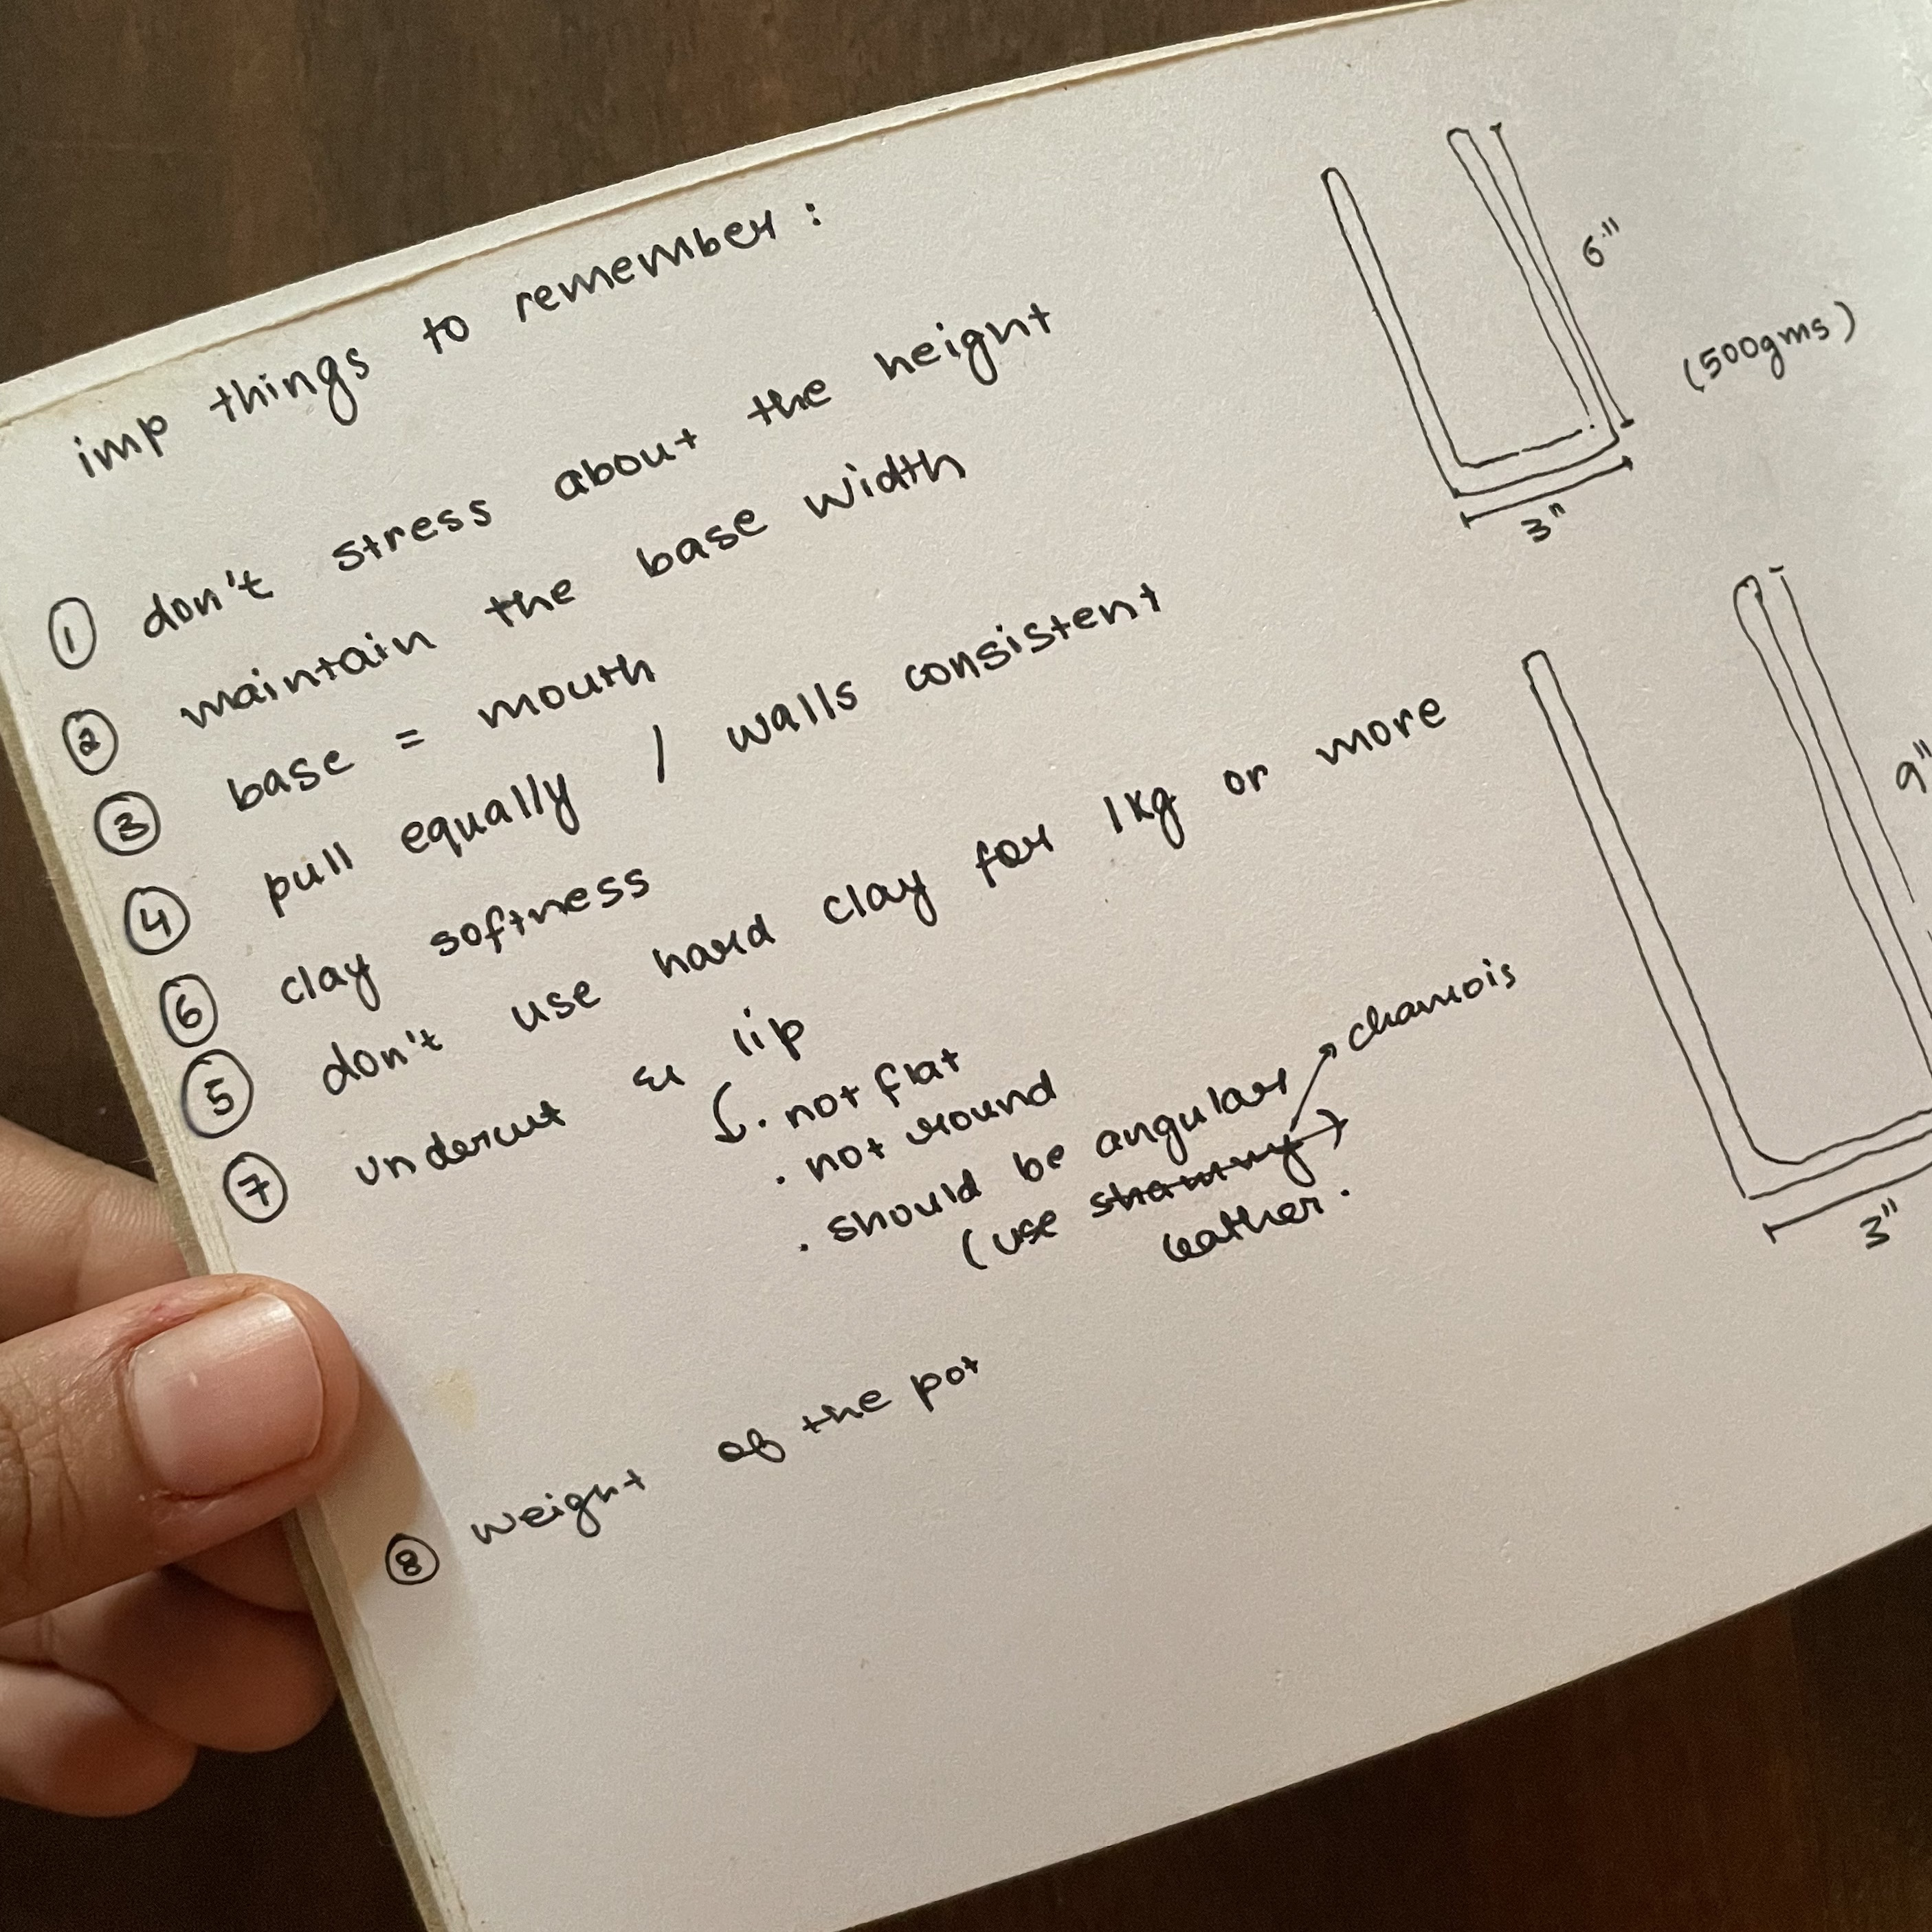 imp things to remember :
① don't stress about the height
② maintain the base width
③ base = mouth
④ pull equally / walls consistent
⑥ clay softness
⑤ don't use hard clay for 1kg or more
⑦ undercut & lip
. not flat
. not round
. should be angular
(use shammy)
chamois
leather.
⑧ weight of the pot
6"
(500gms)
3"
9"
3"